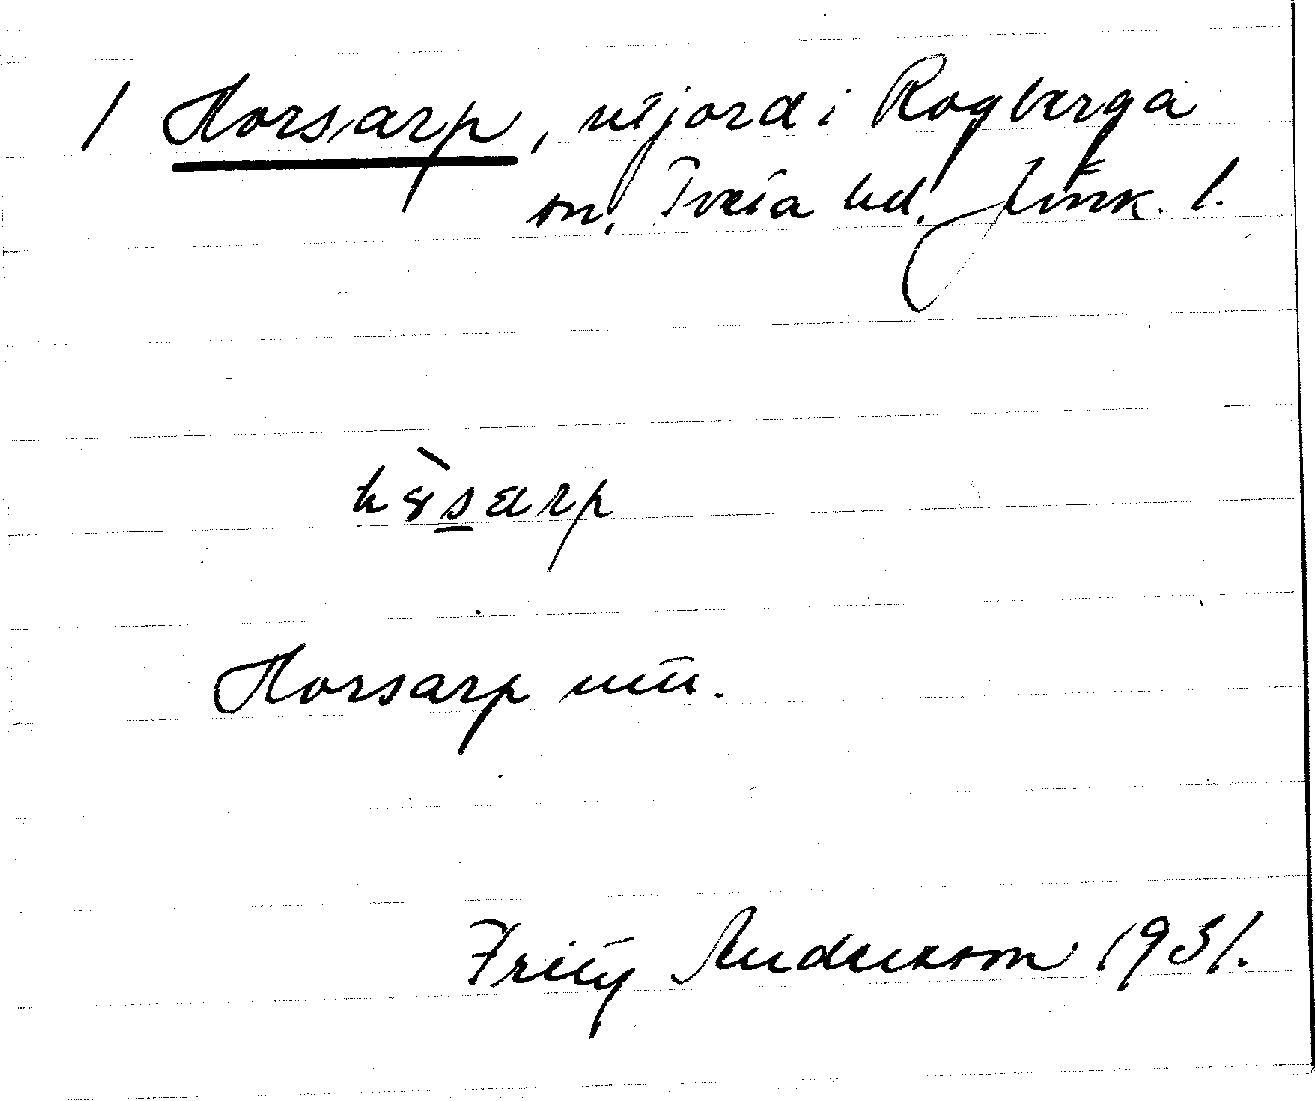 1 Horsarp, utjord i Rogberga
sn, Tveta hd, Jönk. l.
Horsarp
Fritz Andersson 1931.